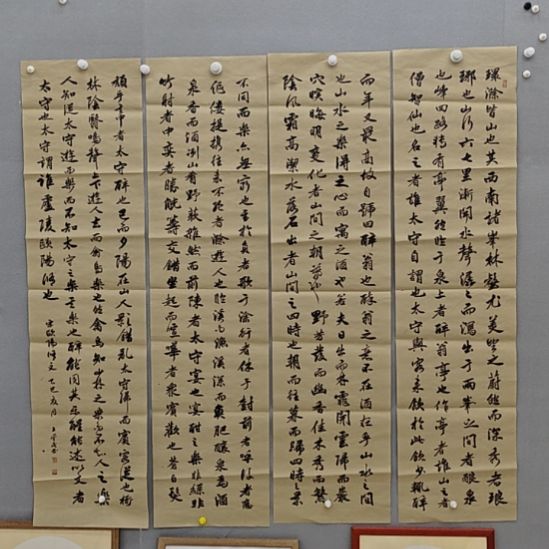 環滁皆山也其西南諸峯林壑尤美望之蔚然而深秀者琅
琊也山行六七里漸聞水聲潺潺而瀉出于兩峯之間者釀泉
也峰回路轉有亭翼然臨於泉上者醉翁亭也作亭者誰山之
僧智仙也名之者誰太守自謂也太守與客來飲於此飲少輒醉
而年又最高故自號曰醉翁也醉翁之意不在酒在乎山水之間
也山水之樂得之心而寓之酒也若夫日出而林霏開雲歸而巖
穴暝晦明變化者山間之朝暮也野芳發而幽香佳木秀而繁
陰風霜高潔水落石出者山間之四時也朝而往暮而歸四時之景
不同而樂亦無窮也至於負者歌于途行者休于樹前者呼後者應
傴僂提攜往來不絕者滁遊人也臨溪而漁溪深而魚肥釀泉為酒
泉香而酒洌山肴野蔌雜然而前陳者太守宴也宴酣之樂非絲非
竹射者中弈者勝觥籌交錯坐起而喧嘩者衆賓歡也蒼白髮
頹乎其中者太守醉也已而夕陽在山人影散亂太守歸而賓客從也樹
林陰翳鳴聲上下遊人去而禽鳥樂也然禽鳥知山林之樂而不知人之樂
人知從太守遊而樂而不知太守之樂其樂也醉能同其樂醒能述以文者
太守也太守謂誰廬陵歐陽修也
宋歐陽修文 乙巳夏月 王書